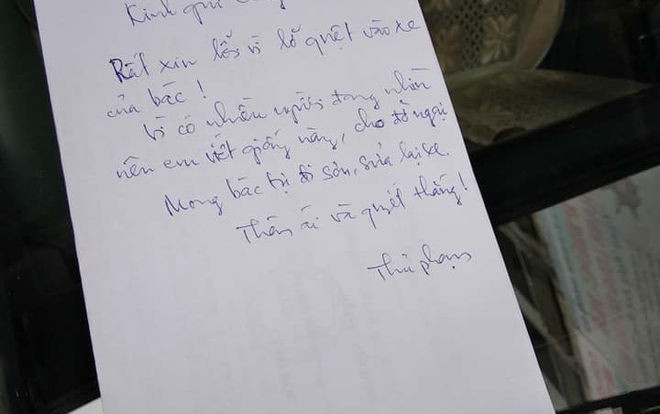 Kính gửi
Rất xin lỗi vì lỡ quệt vào xe
của bác!
Vì có nhiều người đang nhìn
nên em viết giấy này, cho đỡ ngại
Mong bác bị đi sơn, sửa lại xe.
Thân ái và quyết thắng!
Thủ phạm